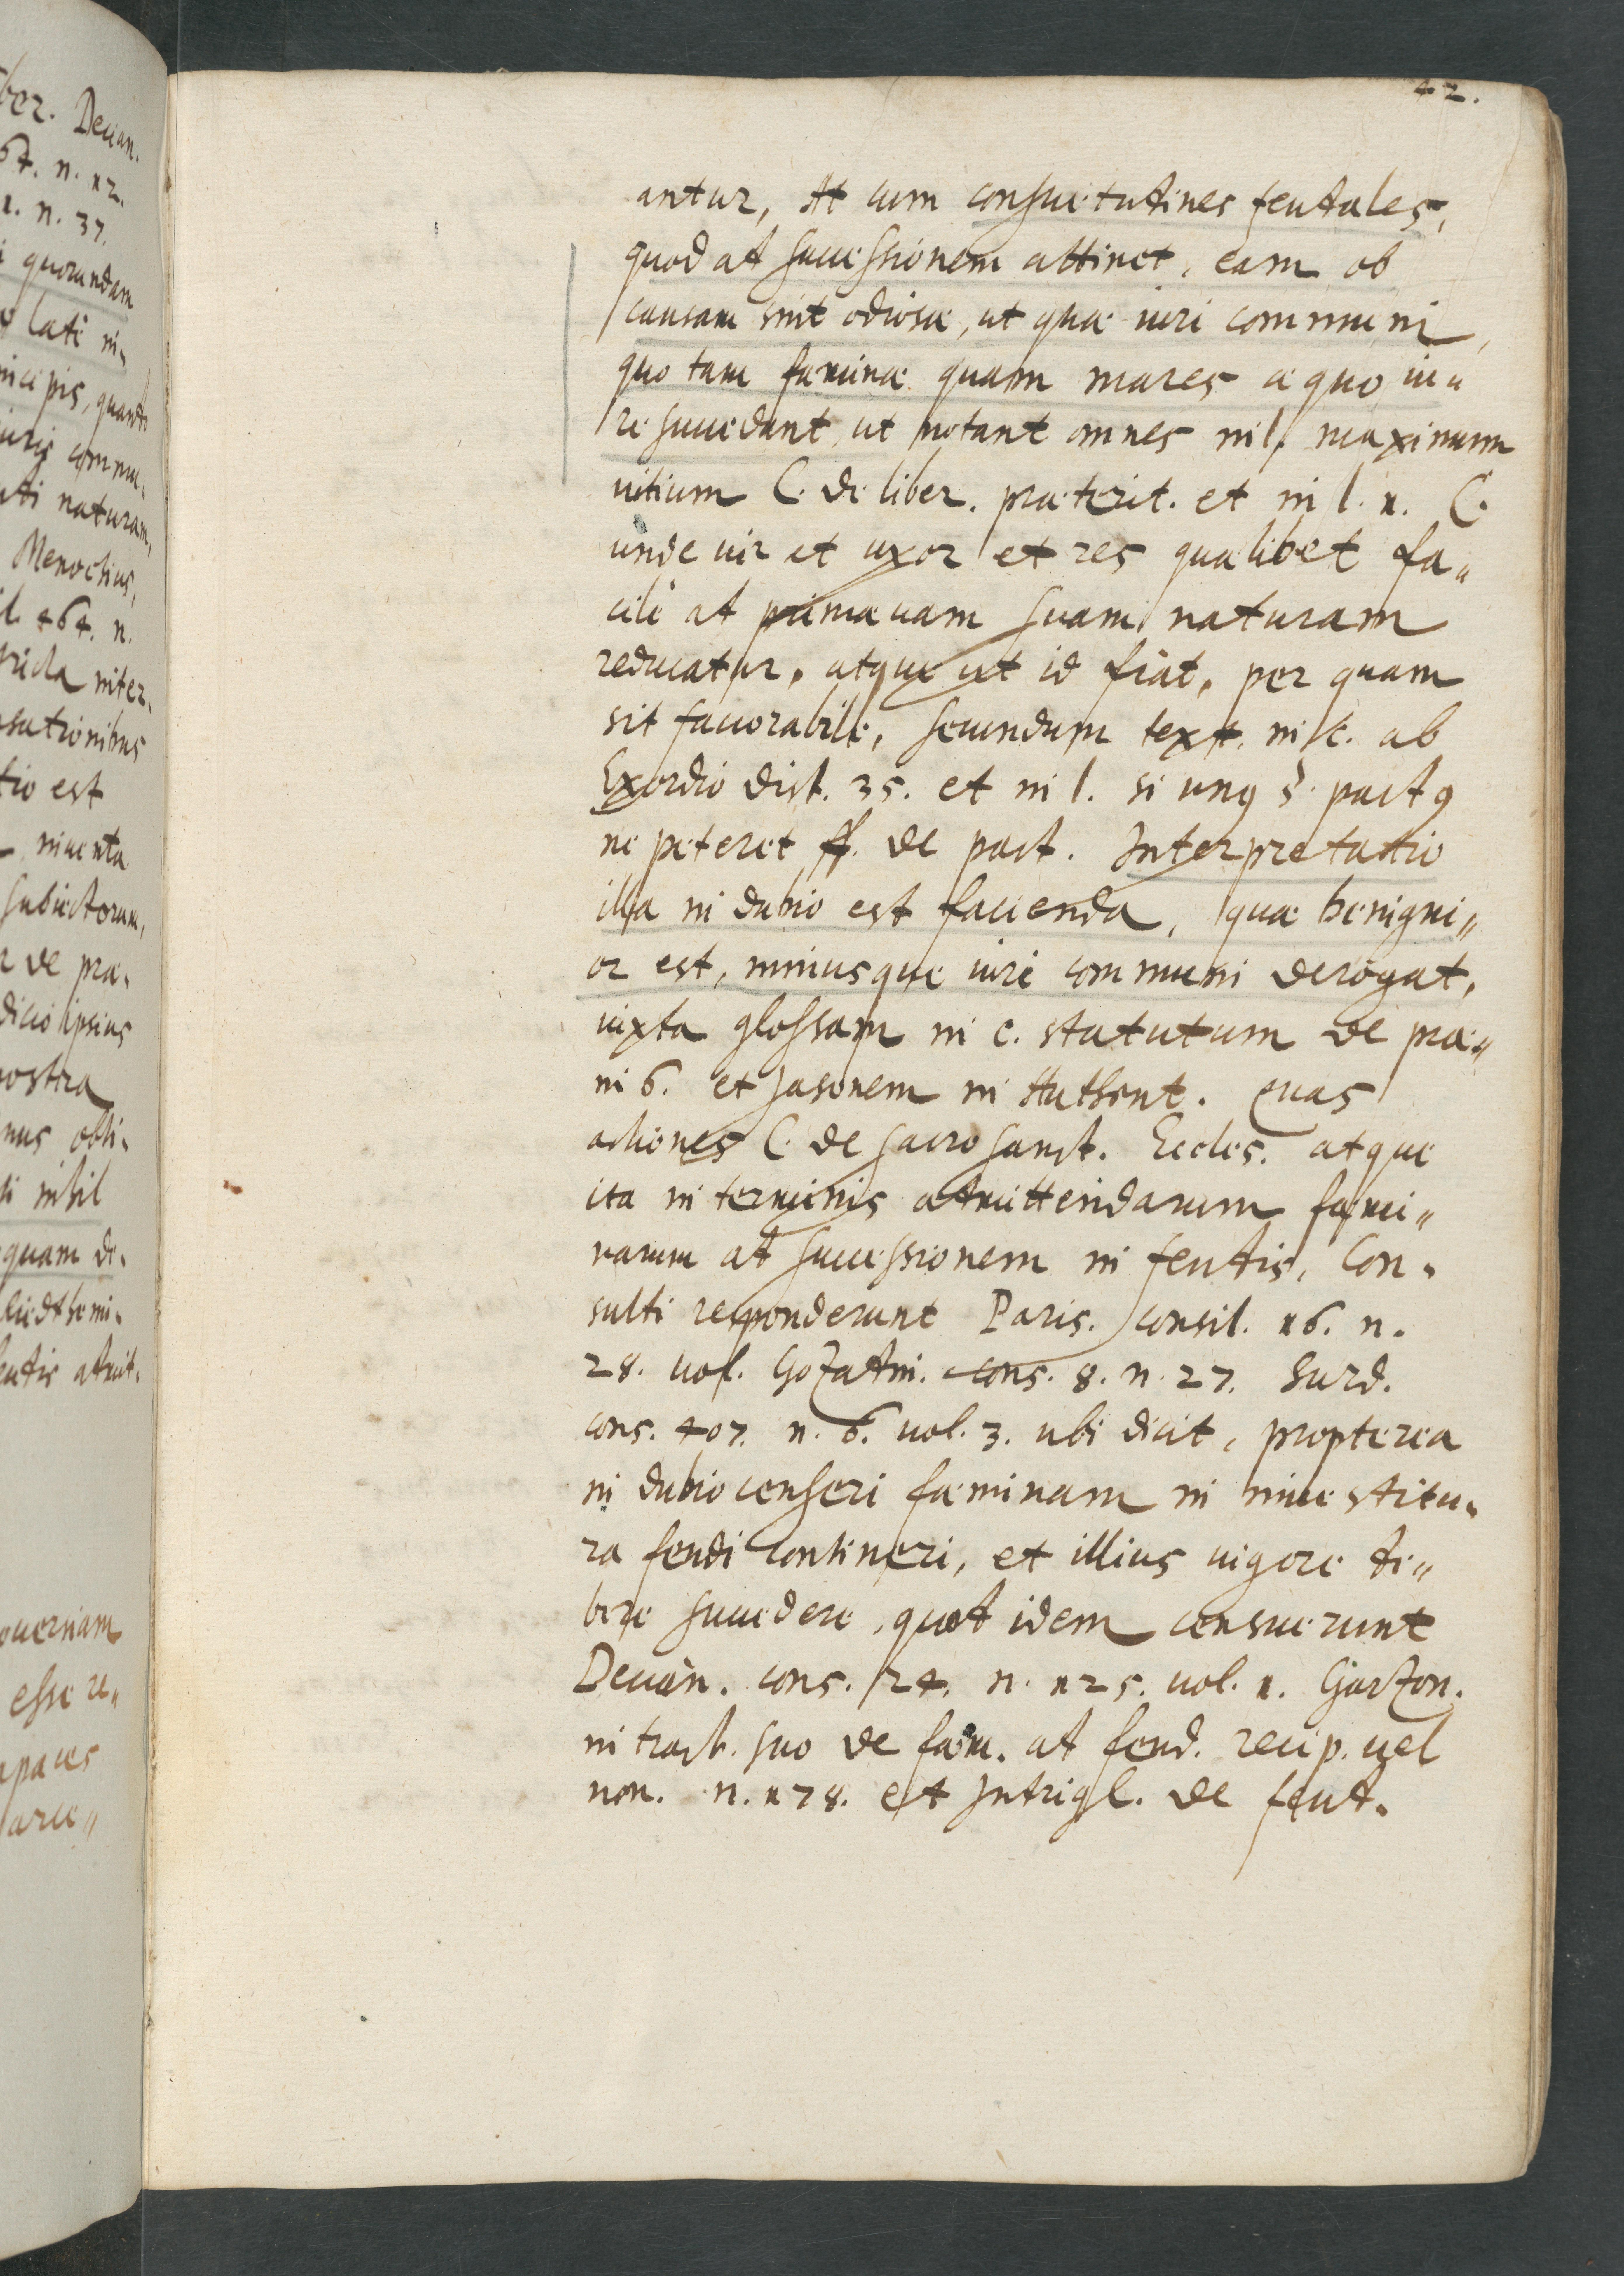 42.
antur, At cum consuetudines feudales,
quod ad successionem attinet, eam ob
causam sint odiosæ, ut quæ iuri communi,
quo tam fæminæ quam mares æquo iu„
re succedant, ut notant omnes in l. maximum
uitium C. de liber. præterit. et in l. 1. C.
unde uir et uxor et res quælibet fa„
cile ad primæuam suam naturam
reducatur, atque ut id fiat, per quam
sit fauorabile, secundum text. in c. ab
Exordio dist. 35. et in l. si unq § pactq
ne peteret ff. de pact. Interpretatio
illa in dubio est facienda, quæ benigni„
or est, minusque iuri communi derogat,
iuxta glossam in c. statutum de præ„
in 6. et Jasonem in Authent. quas
actiones C. de sacrosanct. Eccles. atque
ita in terminis admittendarum fæmi„
narum ad successionem in feudis, Con„
sulti responderunt Paris. consil. 16. n.
28. vol. Gozadin. cons. 8. n. 27. Surd.
cons. 407. n. 6. uol. 3. ubi dicit, propterea
in dubio censeri fæminam in inuestitu„
ra feudi contineri, et illius uigore de„
bere succedere, quod idem censuerunt
Decian. cons. 24. n. 125. uol. 1. Garzon.
in tract. suo de fæm. ad feud. recip. uel
non. n. 178. et Intrigl. de feud.
ber. Decian.
64. n. 12.
1. n. 37.
quorundam
lati in„
incipis, quando
iuris commu„
naturam,
Menochius,
464. n.
inter„
est
inuenta
subiectorum,
de præ„
ipsius
nostra
obli„
nihil
quam de„
admit„
esse re„